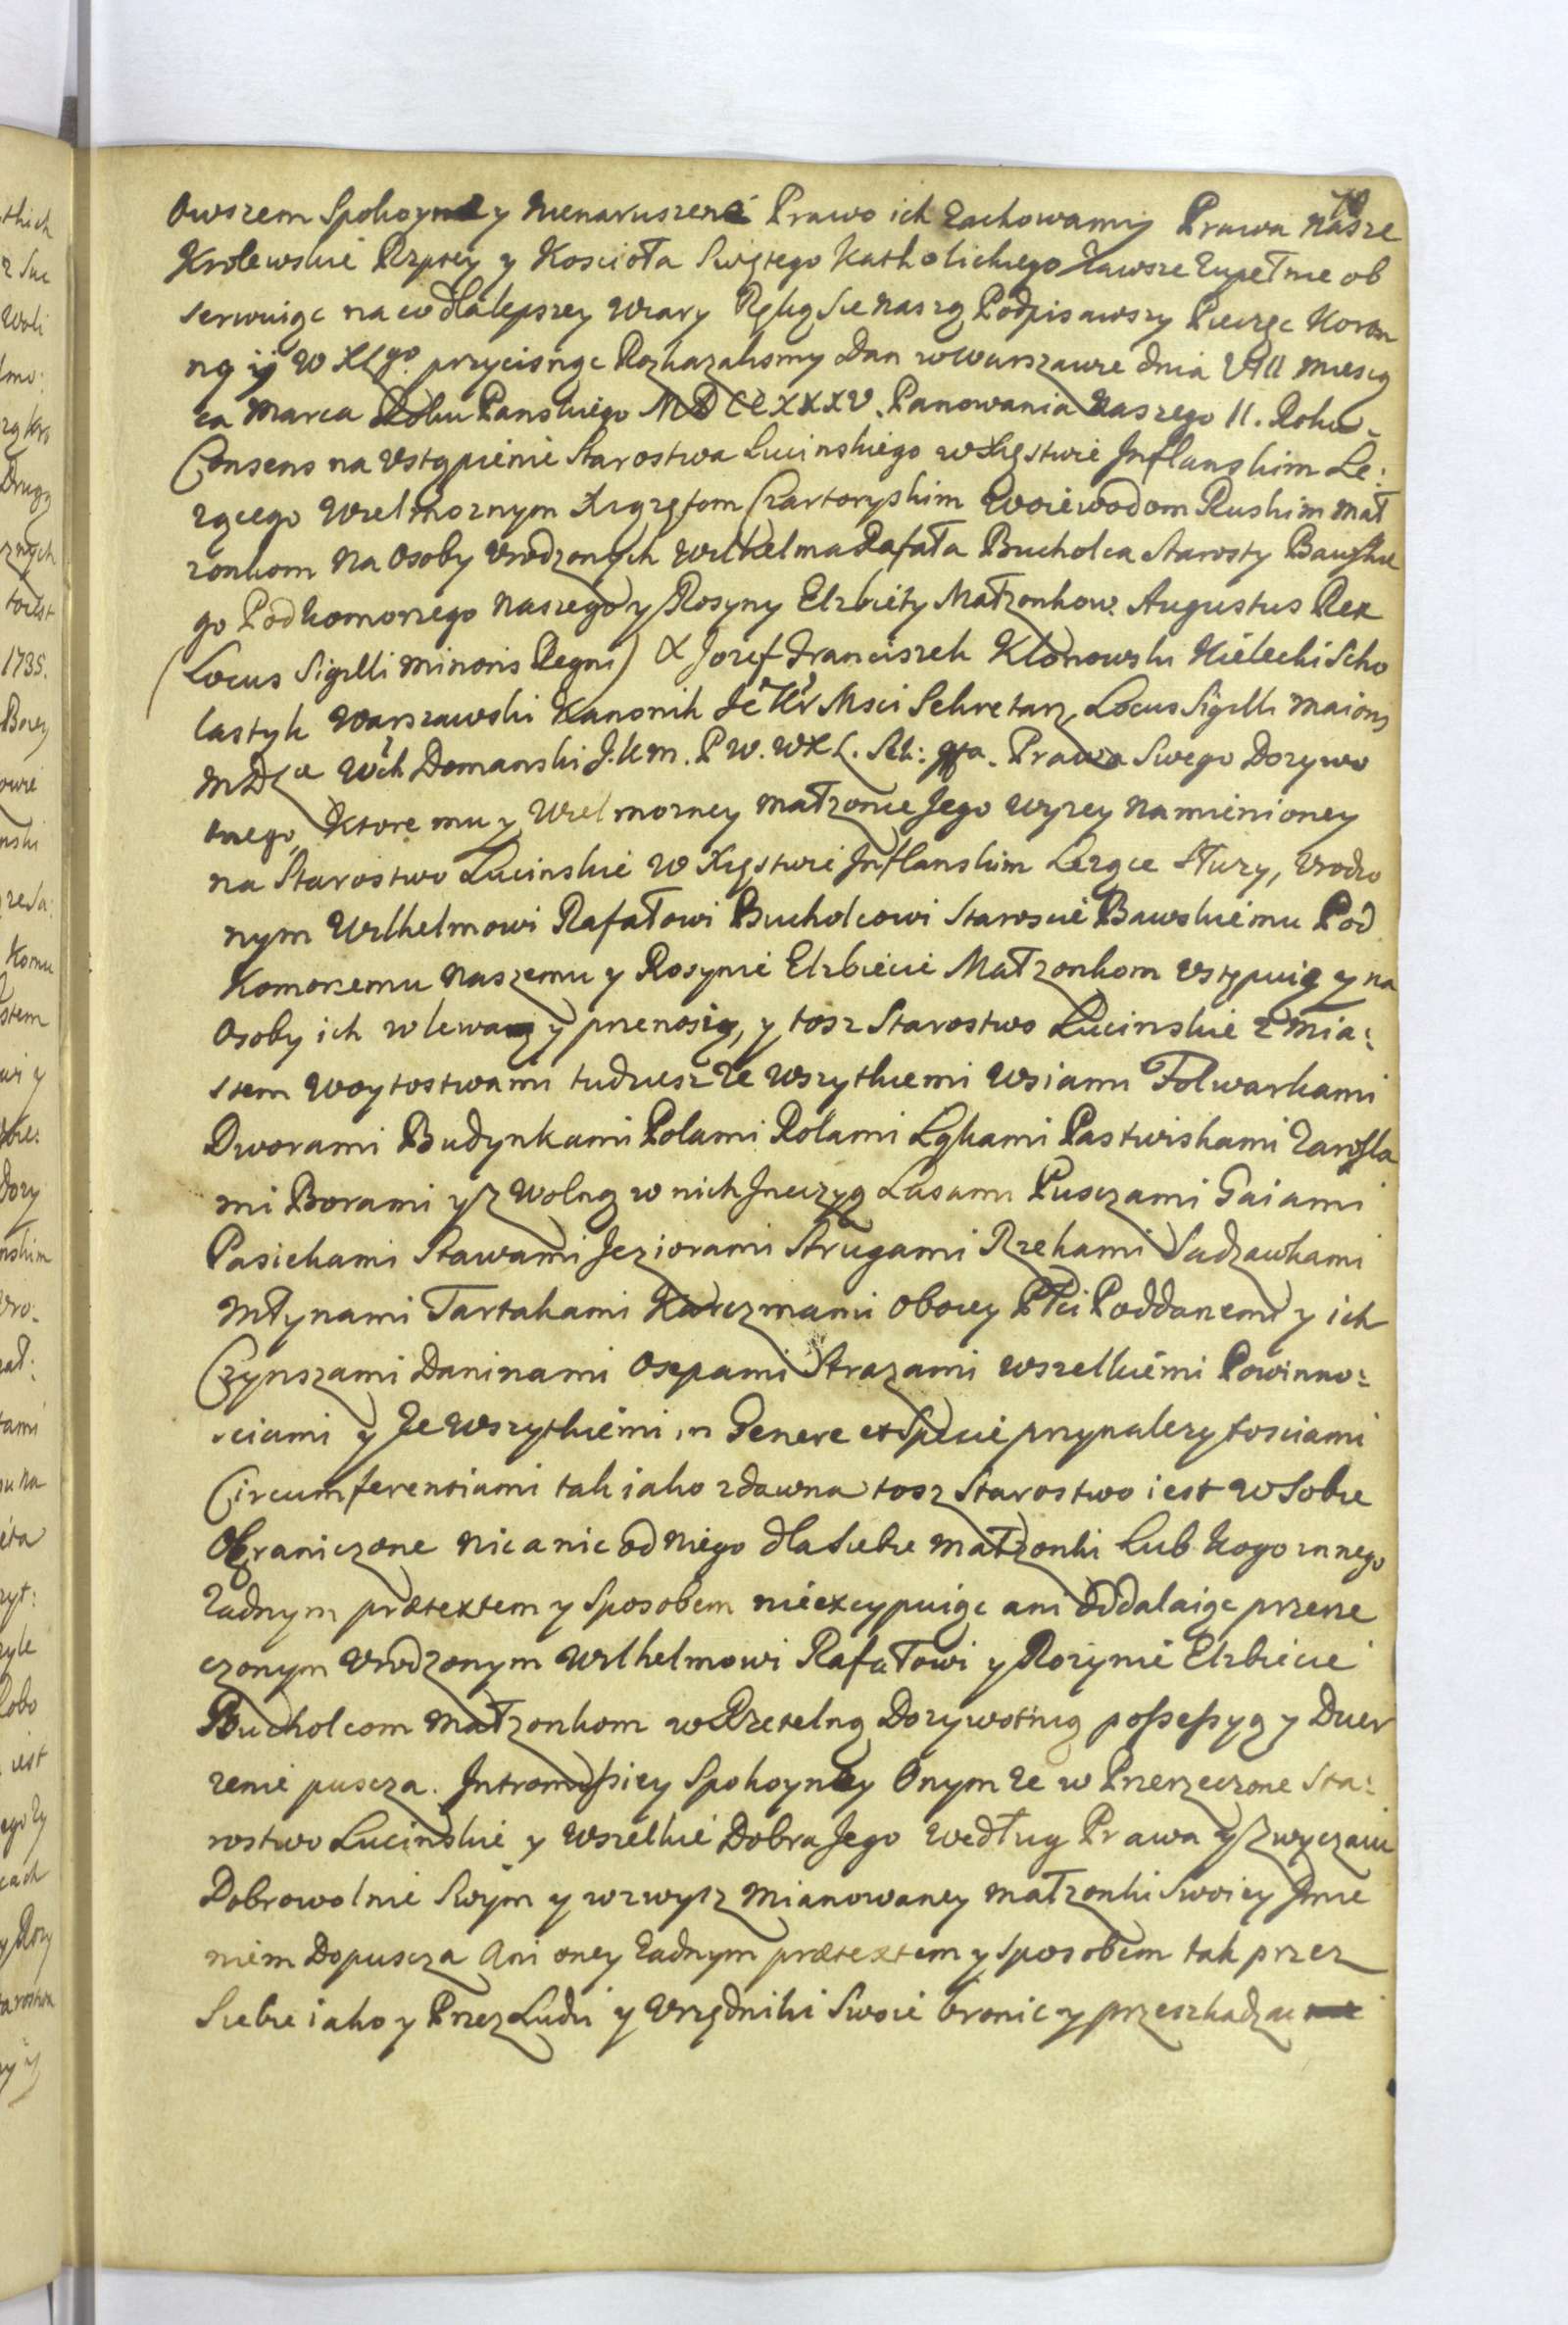 Owszem Spokoyne y Nienaruszené Prawo ich Zachowamy Prawa Nasze
Krolewskie Rzptey y Kościoła Swiętego Katholickiego Zawsze Zupełnie ob
serwuiąc na co dla lepszey Wiary Ręką Sie Naszą Podpisawszy Pieczęc Koron
ną ÿ W XLgo. przycisnąc Rozkazalismy Dan w Warszawie dnia VIII miesią
ca Marca Roku Panskiego MDCCXXXV. Panowania Naszego II. Roku.
Consens na Vstąpienie Starostwa Lucinskiego w Xięstwie Inflanskim Le:
żącego Wielmoznym Xiążętom Czartoryskim Woiewodom Ruskim Mał
żonkom Na Osoby Vrodzonych Wilhelma Rafała Bucholca Starosty Bauskie
go Podkomorzego Naszego y Rosyny Elzbiety Małzonkow. Augustus Rex
(Locus Sigilli Minoris Regni) Jozef Franciszek Klonowski Kielecki Scho
lastyk Warszawski Kanonik Je Kr Msci Sekretarz, Locus Sigilli Maioris
MDL Domanski J.K.M. P W. WXL. Sek: Prawa Swego Dozywo
tnego, Ktore mu y Wielmozney Małzonce Jego Wyzey Namienioney
na Starostwo Lucinskie W Xięstwie Inflanskim Lezące Słuzy, Vrodzo
nym Wilhelmowi Rafałowi Bucholcowi Staroscie Bawskiemu Pod
Komorzemu Naszemu y Rosynie Elzbiecie Małzonkom Vstypuią y na
Osoby ich wlewaią y przenosią, y tosz Starostwo Lucinskie z Mia:
stem Woytostwami tudziesz Ze Wszytkiemi Wsiami Folwarkami
Dworami Budynkami Polami Rolami Ląkami Pastwiskami Zarosla
mi Borami y Z Wolną w nich Lasami Pusczami Gaiami
Pasiekami Stawami Jeziorami Strugami Rzekami Sadzawkami
Młynami Tartakami Karczmami Oboiey Płci Poddanemi y ich
Czynszami Daninami Osepami Strazami Wszelkiemi Powinno:
sciami y Ze Wszytkiemi in Genere et Specie przynalezytosciami
Circumferentiami tak iako zdawna tosz Starostwo iest W Sobie
Ograniczone nic a nic od Niego dla Siebie Małzonki Lub Kogo innego
Zadnym prætextem y Sposobem nieexcypuiąc ani Oddalaiąc przerze
czonym Vrodzonym Wilhelmowi Rafałowi y Rozynie Elzbiecie
Bucholcom Małzonkom w Rzetelną Dozywotnią possessyą y Dzier
zenie puscza. Intromissiey Spokoyney Onym ze w Przerzeczone Sta:
rostwo Lucinskie y Wszelkie Dobra Jego Według Prawa y Zwyczaiu
Dobrowolnie Swym y wzwysz Mianowaney Małzonki Swoiey Imie
niem Dopuscza Ani oney Zadnym prætextem y Sposobem tak przez
Siebie iako y Przez Ludzi y Vrzędniki Swoie bronic y przeszkadzac